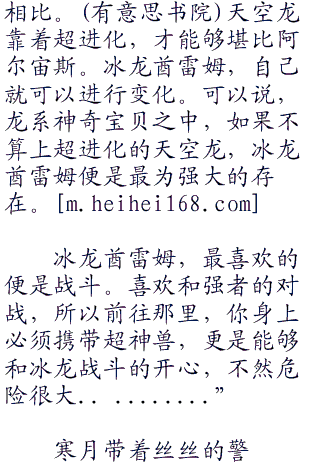 相比。(有意思书院)天空龙
靠着超进化，才能够堪比阿
尔宙斯。冰龙酋雷姆，自己
就可以进行变化。可以说，
龙系神奇宝贝之中，如果不
算上超进化的天空龙，冰龙
酋雷姆便是最为强大的存
在。[m.heihei168.com]
冰龙酋雷姆，最喜欢的
便是战斗。喜欢和强者的对
战，所以前往那里，你身上
必须携带超神兽，更是能够
和冰龙战斗的开心，不然危
险很大..........”
寒月带着丝丝的警